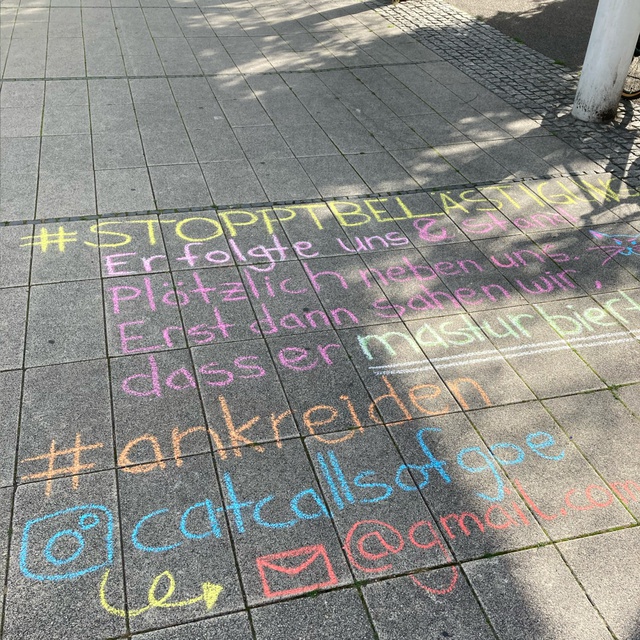 #STOPPTBELÄSTIGUNG
Er folgte uns & stand
Plötzlich neben uns.
Erst dann sahen wir,
dass er masturbiert
#ankreiden
catcallsofgoe
@gmail.com